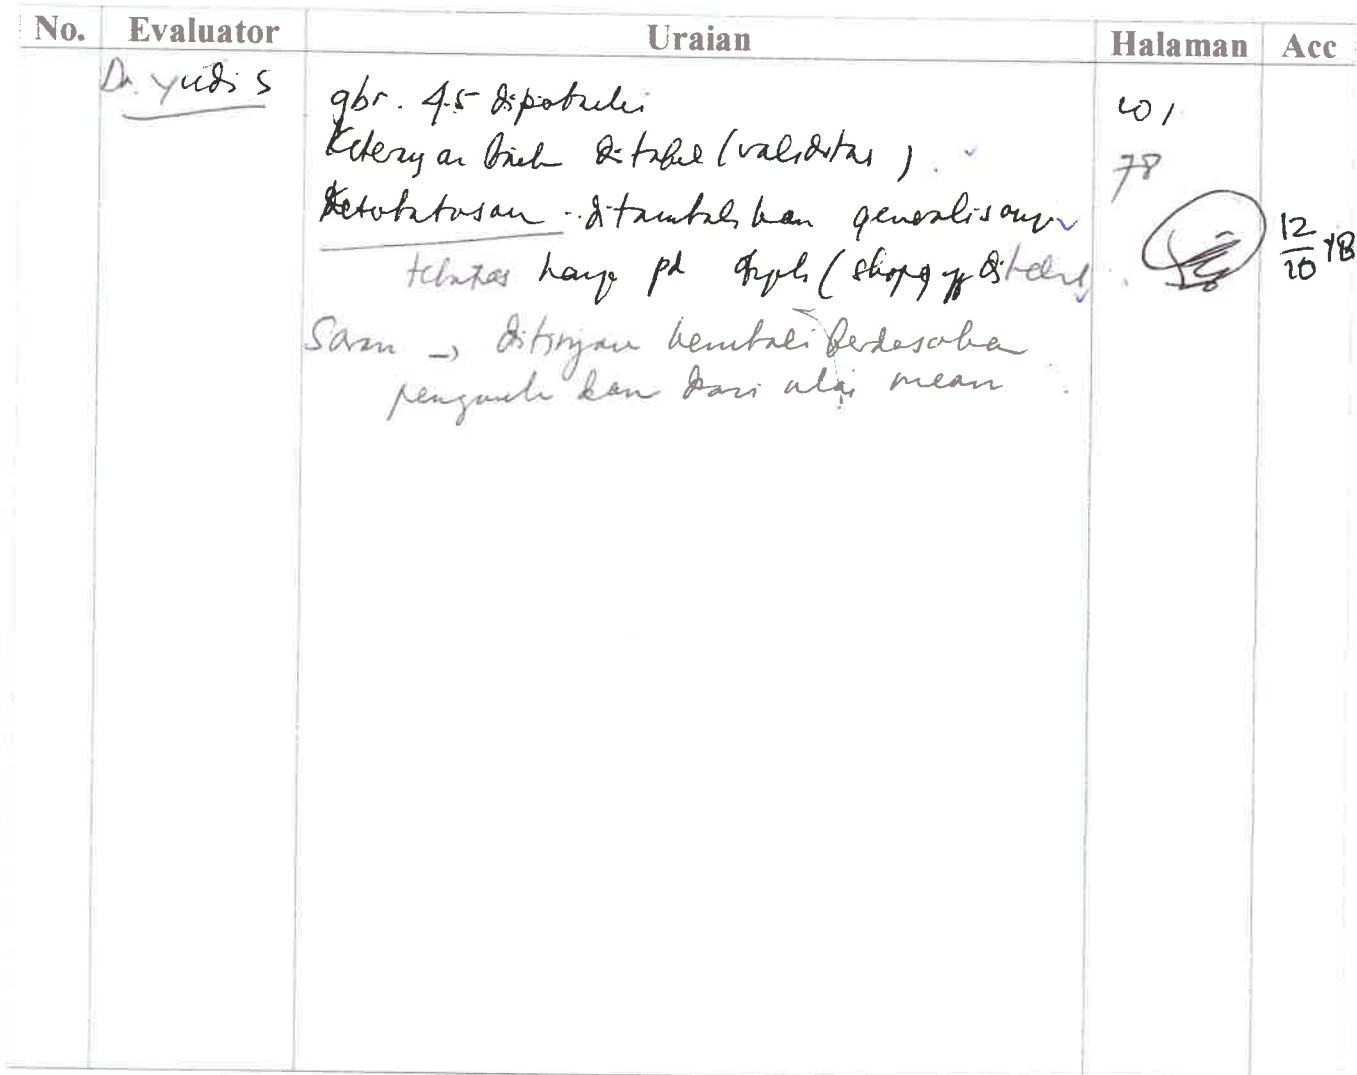 No. Evaluator Uraian Halaman Acc
Dr. Yudi S
gbr. 4.5 diperbaiki 101
Keterangan butir di tabel (validitas) 78
Keterbatasan ditambahkan generalisasinya 12/10 YB
terbatas hanya pd (shopee yg diteliti
Saran → ditinjau kembali berdasarkan
pengaruh dan dari nilai mean